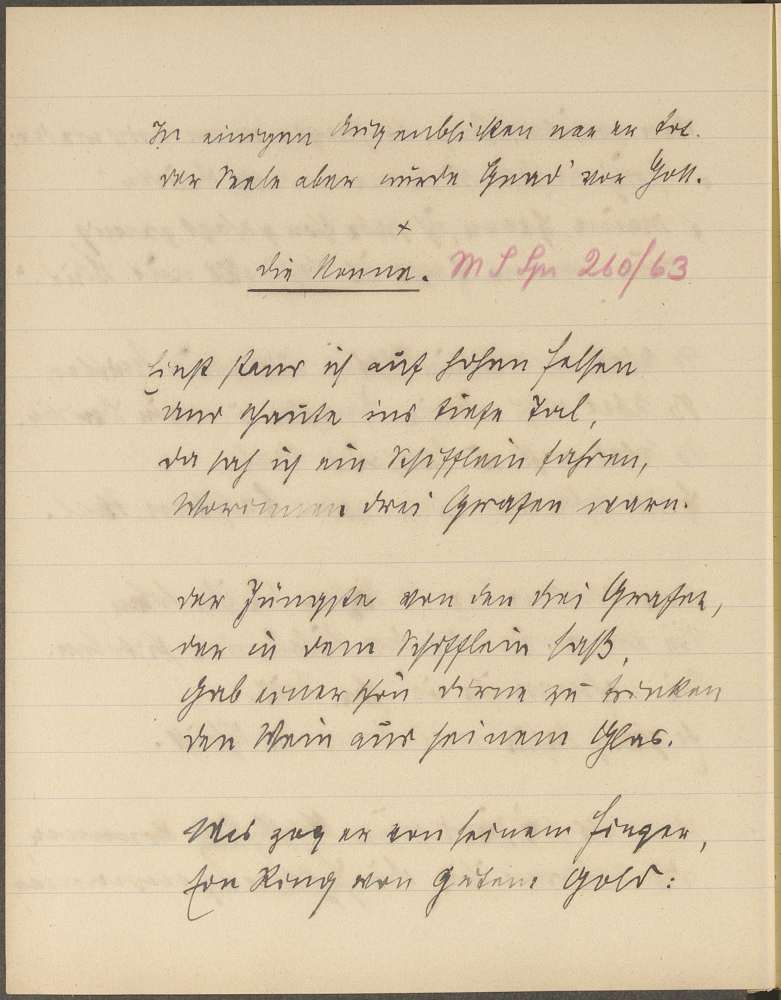 In einigen Augenblicken war er tot.
der Seele aber wurde Gnad' vor Gott.
x
Die Nonne. M S 260/63
Einst stand ich auf hohen Felsen
und schaute ins tiefe Tal,
da sah ich ein Schifflein fahren,
Worinnen drei Grafen warn.
der Jüngste von den drei Grafen,
der in dem Schifflein saß,
Gab einer schön dirne zu trinken
den Wein aus seinem Glas.
Was zog er von seinem Finger,
Ein Ring von Gutem Gold: